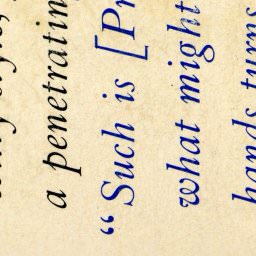 a penetratin
“Such is [Pr
what might
hands turns